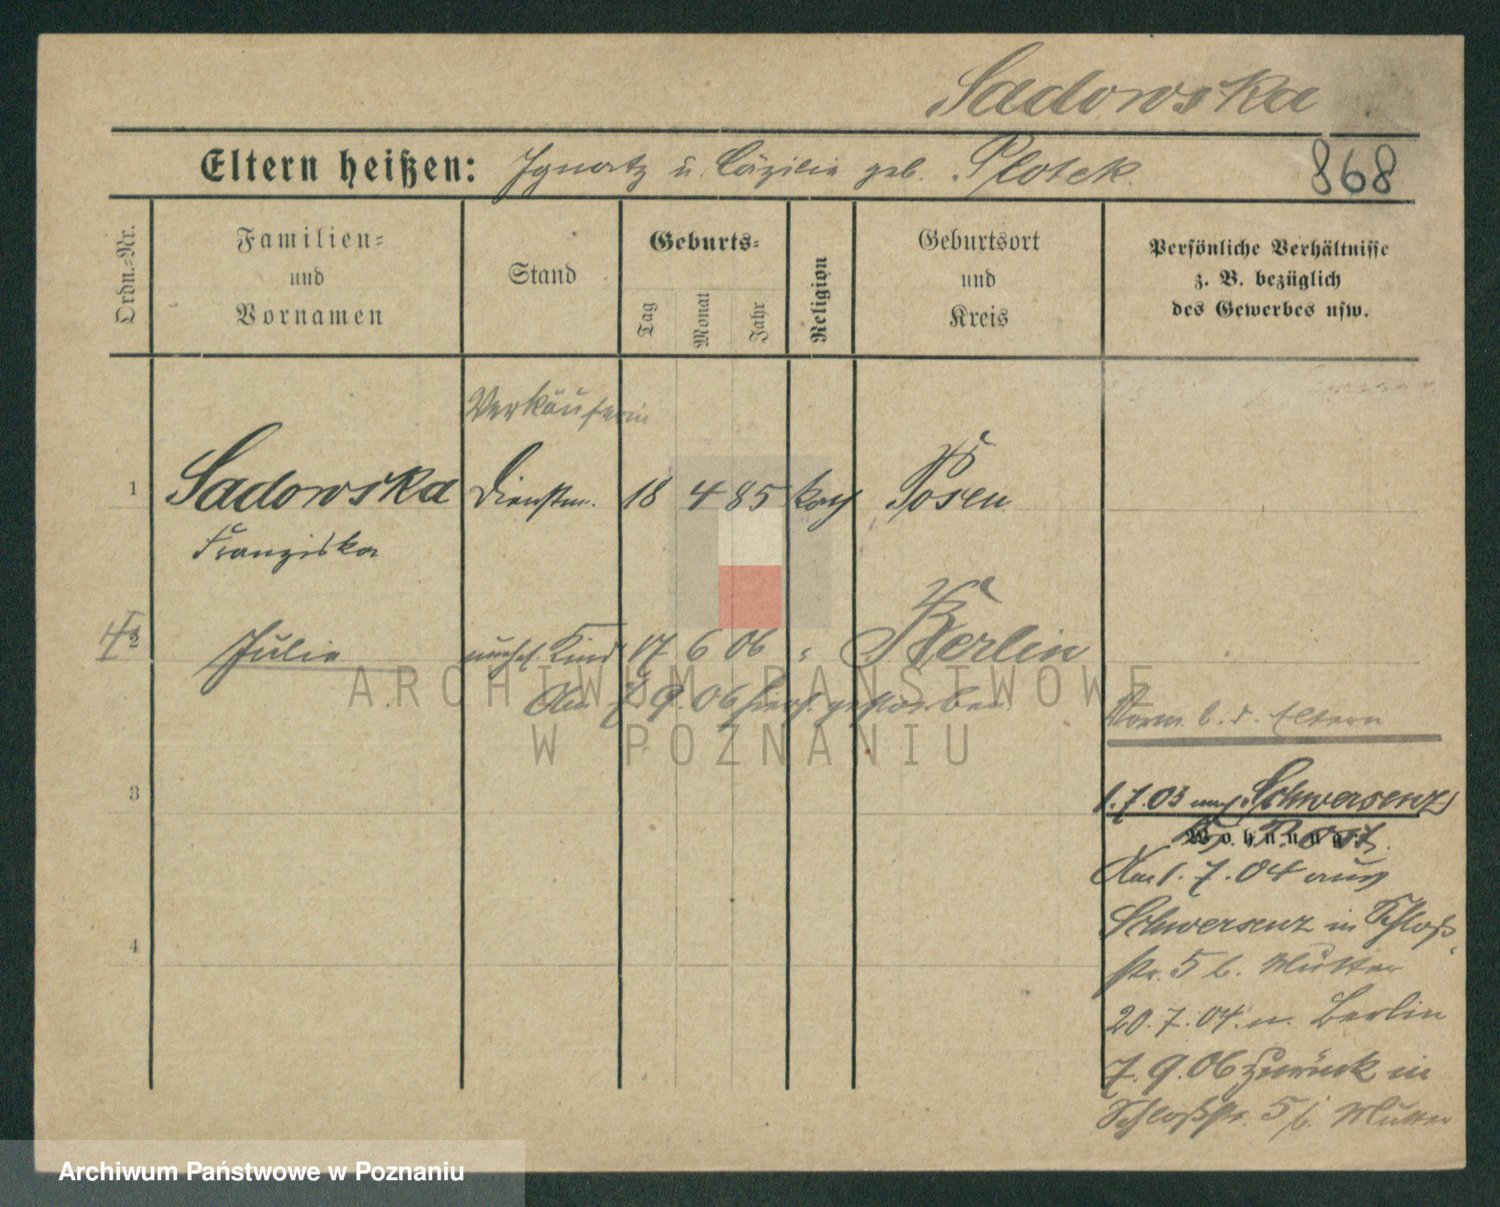 Sadowska
Eltern heißen: Ignatz u. Cäzilie geb. Plotek.
868
Ordn.-Nr.
Familien-
und
Vornamen
Stand
Geburts-
Tag
Monat
Jahr
Religion
Geburtsort
und
Kreis
Persönliche Verhältnisse
z. B. bezüglich
des Gewerbes usw.
Verkäuferin
1 Sadowska Dienstm. 18 4 85 kath Posen
Franziska
2 Julie unehel. Kind 17 6 06 " Berlin
Am 7 9. 06 hier gestorben
ARCHIWUM PAŃSTWOWE
W POZNANIU
Vorm. b. d. Eltern
3
1.7.03 nach Schwersenz
Wohnung:
Am 1.7.04 aus
Schwersenz in Schloß-
4
str. 5 b. Mutter
20.7.04. n. Berlin
7.9.06 zurück in
Schloßstr. 5 b. Mutter
Archiwum Państwowe w Poznaniu